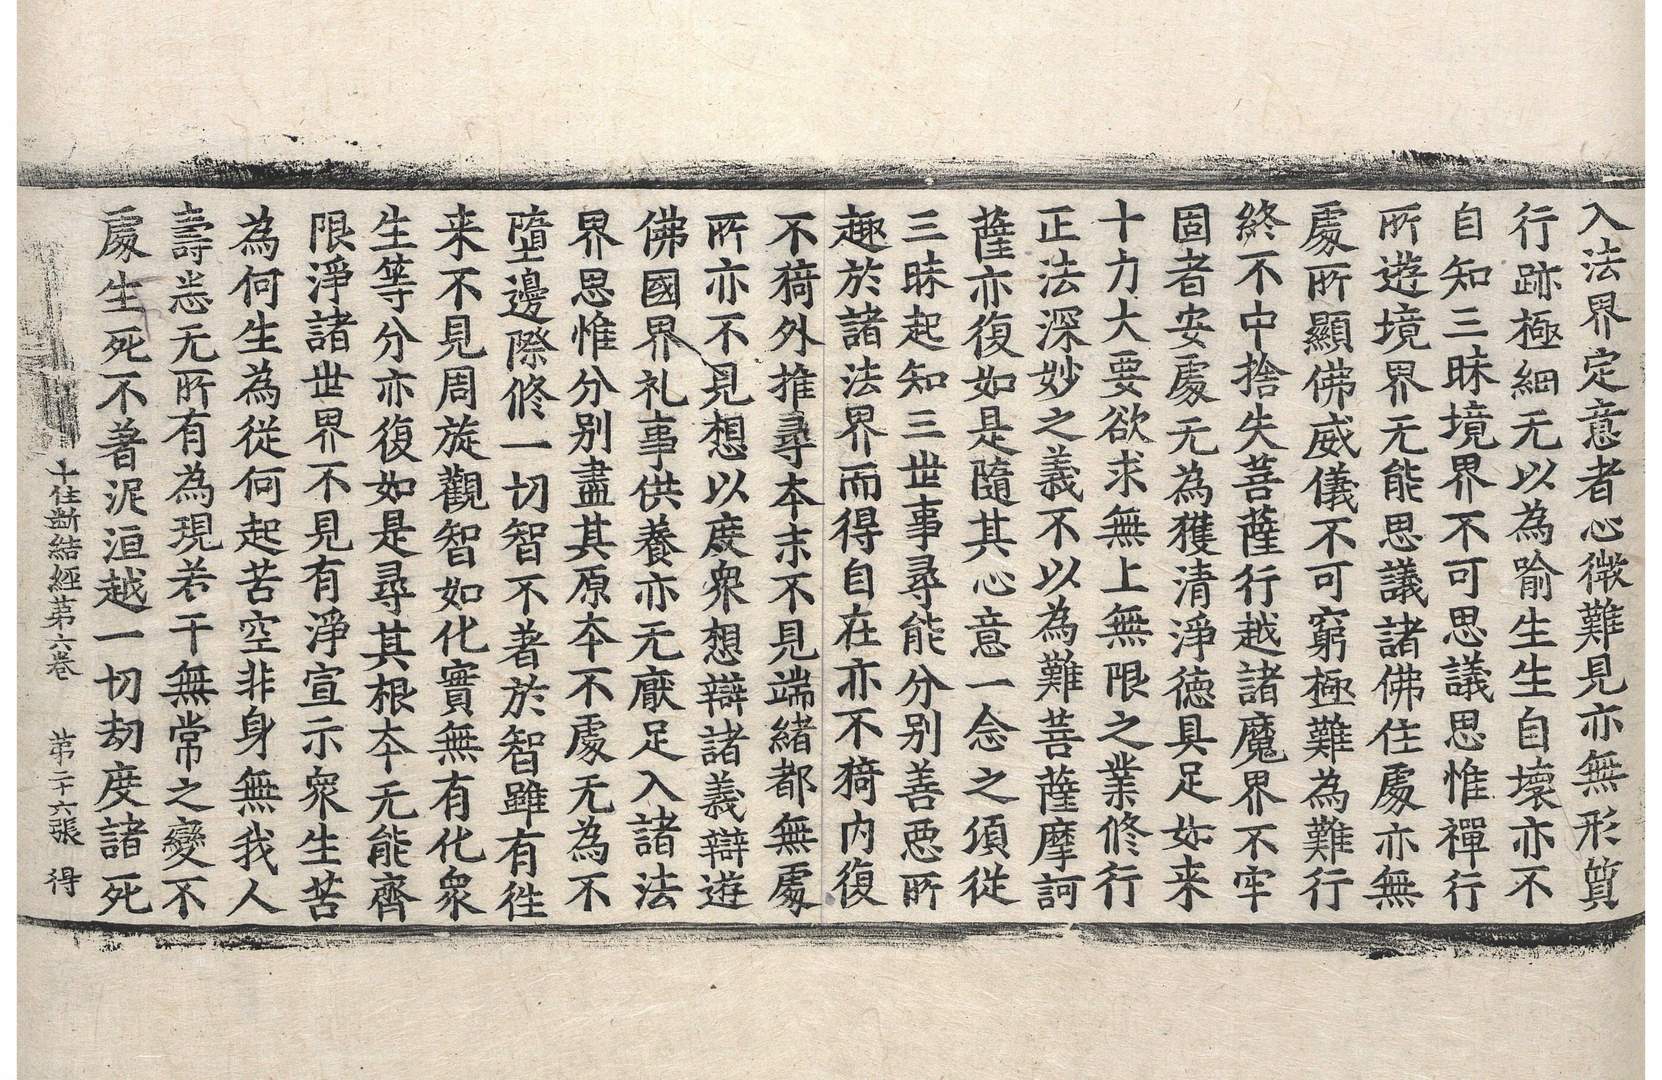 入法界定意者心微難見亦無形質
行跡極細无以為喻生生自壞亦不
自知三昧境界不可思議思惟禪行
所遊境界无能思議諸佛住處亦無
處所顯佛威儀不可窮極難為難行
終不中捨失菩薩行越諸魔界不牢
固者安處无為獲清淨德具足如来
十力大要欲求無上無限之業修行
正法深妙之義不以為難菩薩摩訶
薩亦復如是隨其心意一念之項従
三昧起知三世事尋能分別善惡所
趣於諸法界而得自在亦不猗内復
不猗外推尋本末不見端緒都無處
所亦不見想以度衆想辯諸義辯遊
佛國界礼事供養亦无厭足入諸法
界思惟分別盡其原本不處无為不
墮邊際修一切智不著於智雖有徃
来不見周旋觀智如化實無有化衆
生等分亦復如是尋其根本无能齊
限淨諸世界不見有淨宣示衆生苦
為何生為從何起苦空非身無我人
壽恙无所有為現若干無常之變不
處生死不著泥洹越一切劫度諸死
十住断結經第六卷 第二十六張 得